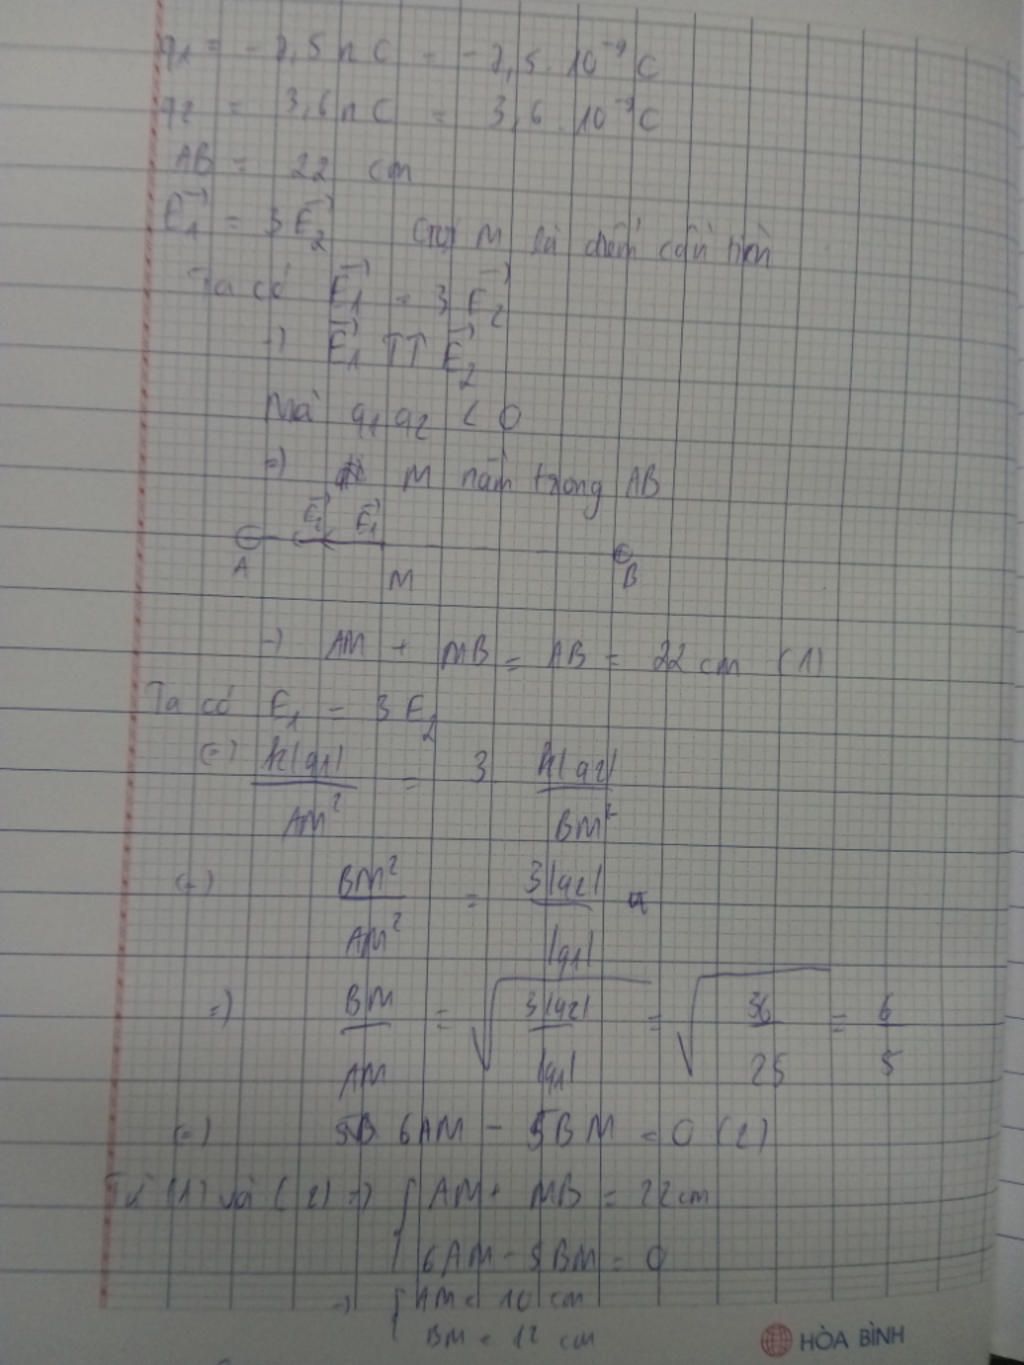 q1 = -2,5 nC = -2,5.10^-9 C
q2 = 3,6 nC = 3,6.10^-9 C
AB = 22 cm
E1→ = 3E2→ Gọi M là điểm cần tìm
Ta có E1→ = 3E2→
=) E1→ ↑↑ E2→
Mà q1q2 < 0
=) M nằm trong AB
E2→ E1→
A M B
=) AM + MB = AB = 22 cm (1)
Ta có E1 = 3E2
(=) k|q1| / AM² = 3 k|q2| / BM²
(=) BM² / AM² = 3|q2| / |q1|
=) BM / AM = √(3|q2| / |q1|) = √(36 / 25) = 6 / 5
(=) 6AM - 5BM = 0 (2)
Từ (1) và (2) =) { AM + MB = 22 cm
6AM - 5BM = 0
=) { AM = 10 cm
BM = 12 cm
HÒA BÌNH